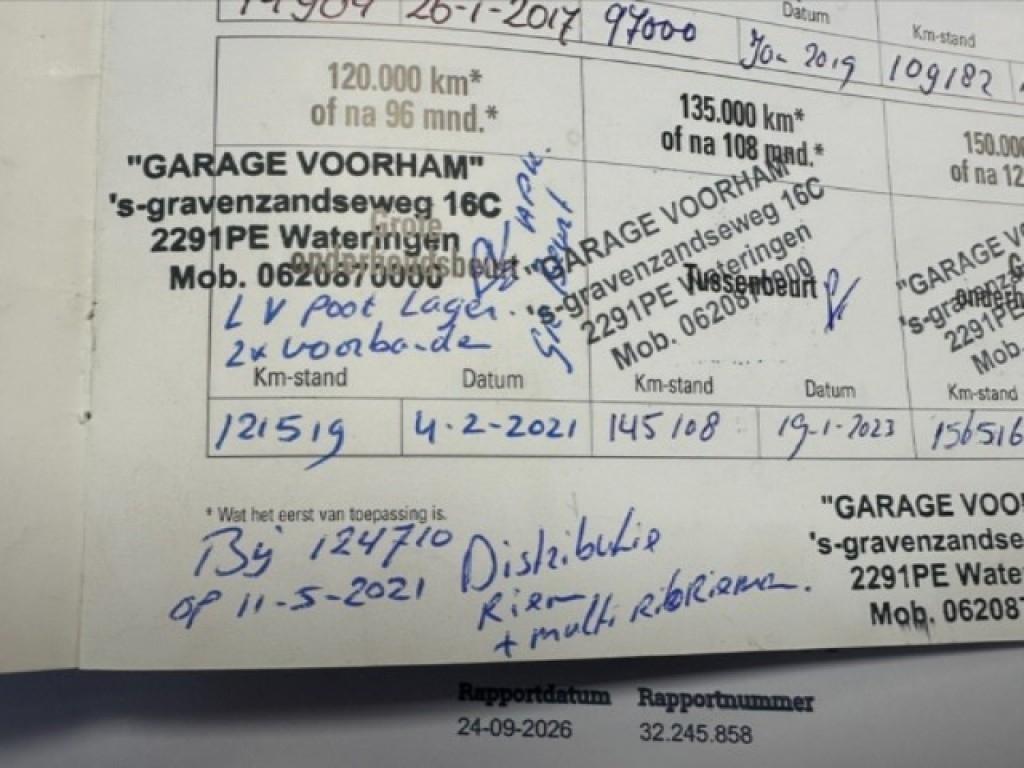 26-1-2017 97000 Datum Km-stand
Jan 2019 109182
120.000 km*
of na 96 mnd.*
135.000 km*
of na 108 mnd.*
150.000
of na 12
"GARAGE VOORHAM"
's-gravenzandseweg 16C
2291PE Wateringen
Mob. 0620870000
Grote
onderhoudsbeurt
+ APK.
Gr Beurt
LV Poot Lager.
2x voorbande
"GARAGE VOORHAM"
's-gravenzandseweg 16C
2291PE Wateringen
Mob. 0620870000
Tussenbeurt
"GARAGE VO
's-gravenz
2291PE
Mob.
Km-stand Datum Km-stand Datum Km-stand
121519 4-2-2021 145108 19-1-2023 156516
* Wat het eerst van toepassing is.
Bij 124710
op 11-5-2021
Distributie
Riem
+ multi ribRiemen.
"GARAGE VOO
's-gravenzandse
2291PE Wate
Mob. 06208
Rapportdatum Rapportnummer
24-09-2026 32.245.858